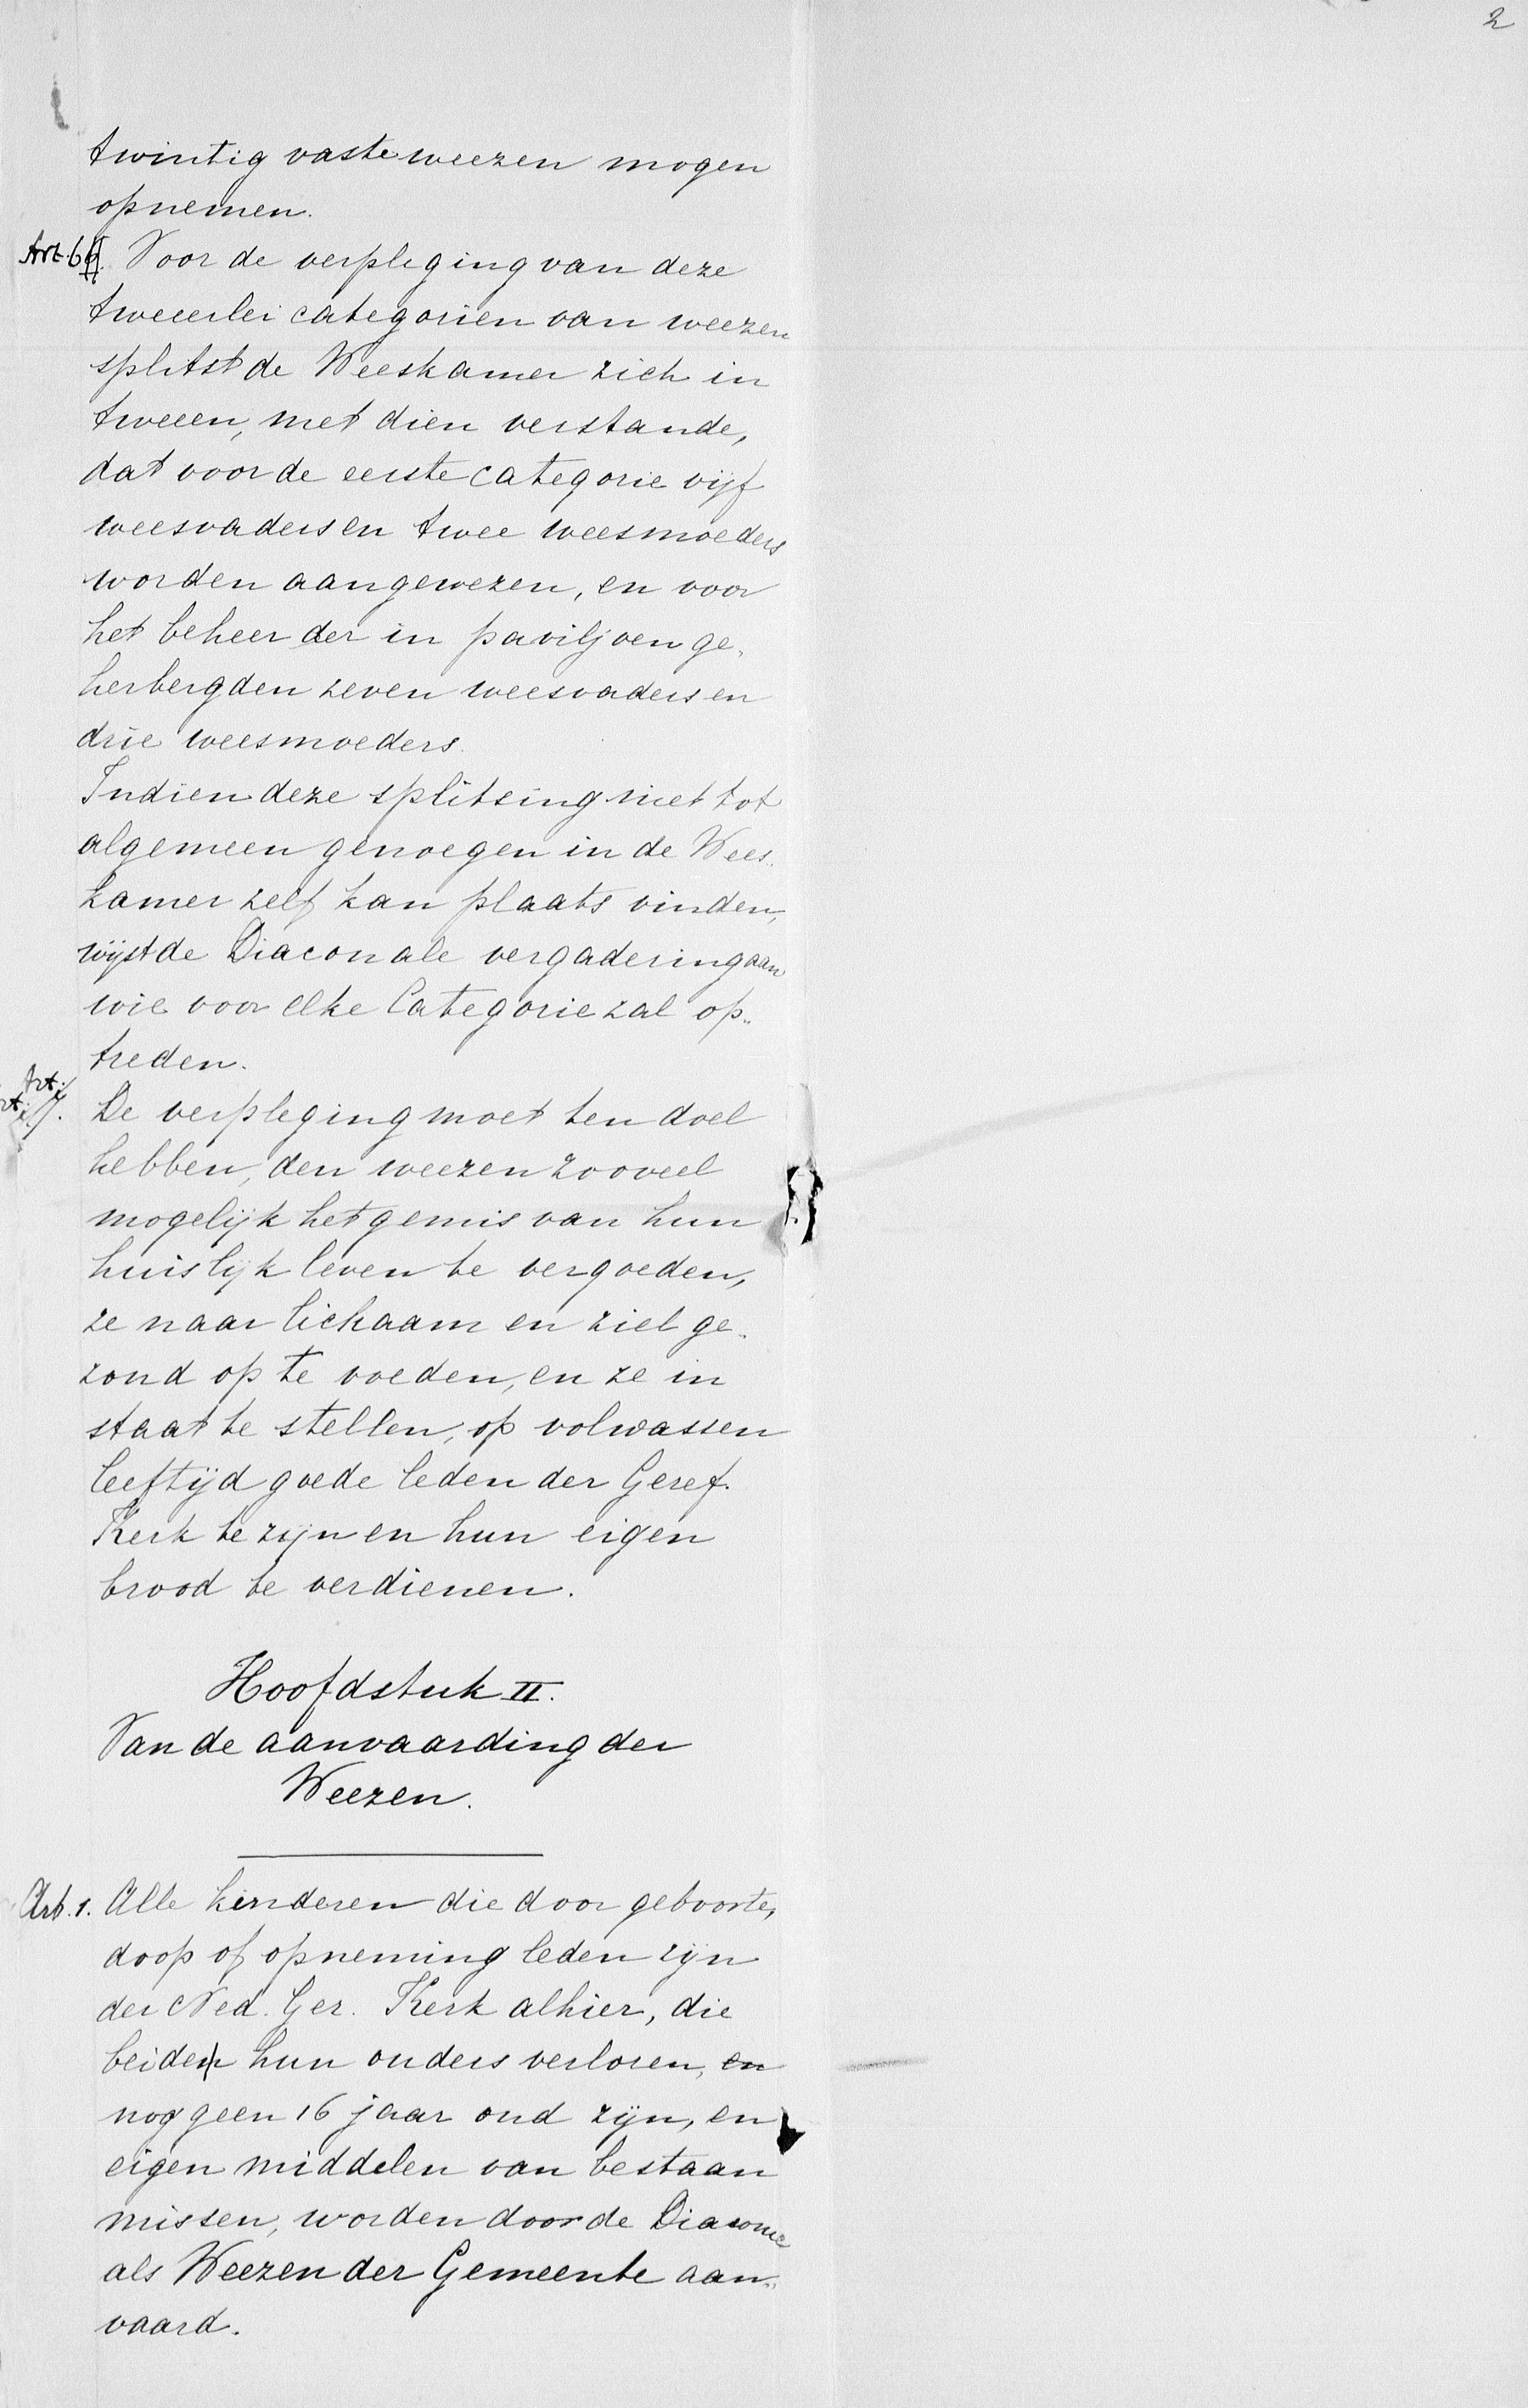 2
twintig vaste weezen mogen
opnemen.
Art. 6. Voor de verpleging van deze
tweeerlei categorien van weezen
splitst de Weeskamer zich in
tweeen, met dien verstande,
dat voor de eerste categorie vijf
weesvaders en twee weesmoeders
worden aangewezen, en voor
het beheer der in paviljoen ge-
herbergden zeven weesvaders en
drie weesmoeders.
Indien deze splitsing niet tot
algemeen genoegen in de Wees-
kamer zelf kan plaats vinden,
wijst de Diaconale vergadering aan
wie voor elke Categorie zal op-
treden.
Art. 7. De verpleging moet ten doel
hebben, den weezen zooveel
mogelijk het gemis van hun
huislijk leven te vergoeden,
ze naar lichaam en ziel ge-
zond op te voeden, en ze in
staat te stellen, op volwassen
leeftijd goede leden der Geref.
Kerk te zijn en hun eigen
brood te verdienen.
Hoofdstuk II.
Van de aanvaarding der
Weezen.
Art. 1. Alle kinderen die door geboorte,
doop of opneming leden zijn
der Ned. Ger. Kerk alhier, die
beiden hun ouders verloren, en
nog geen 16 jaar oud zijn, en
eigen middelen van bestaan
missen, worden door de Diaconie
als Weezen der Gemeente aan-
vaard.